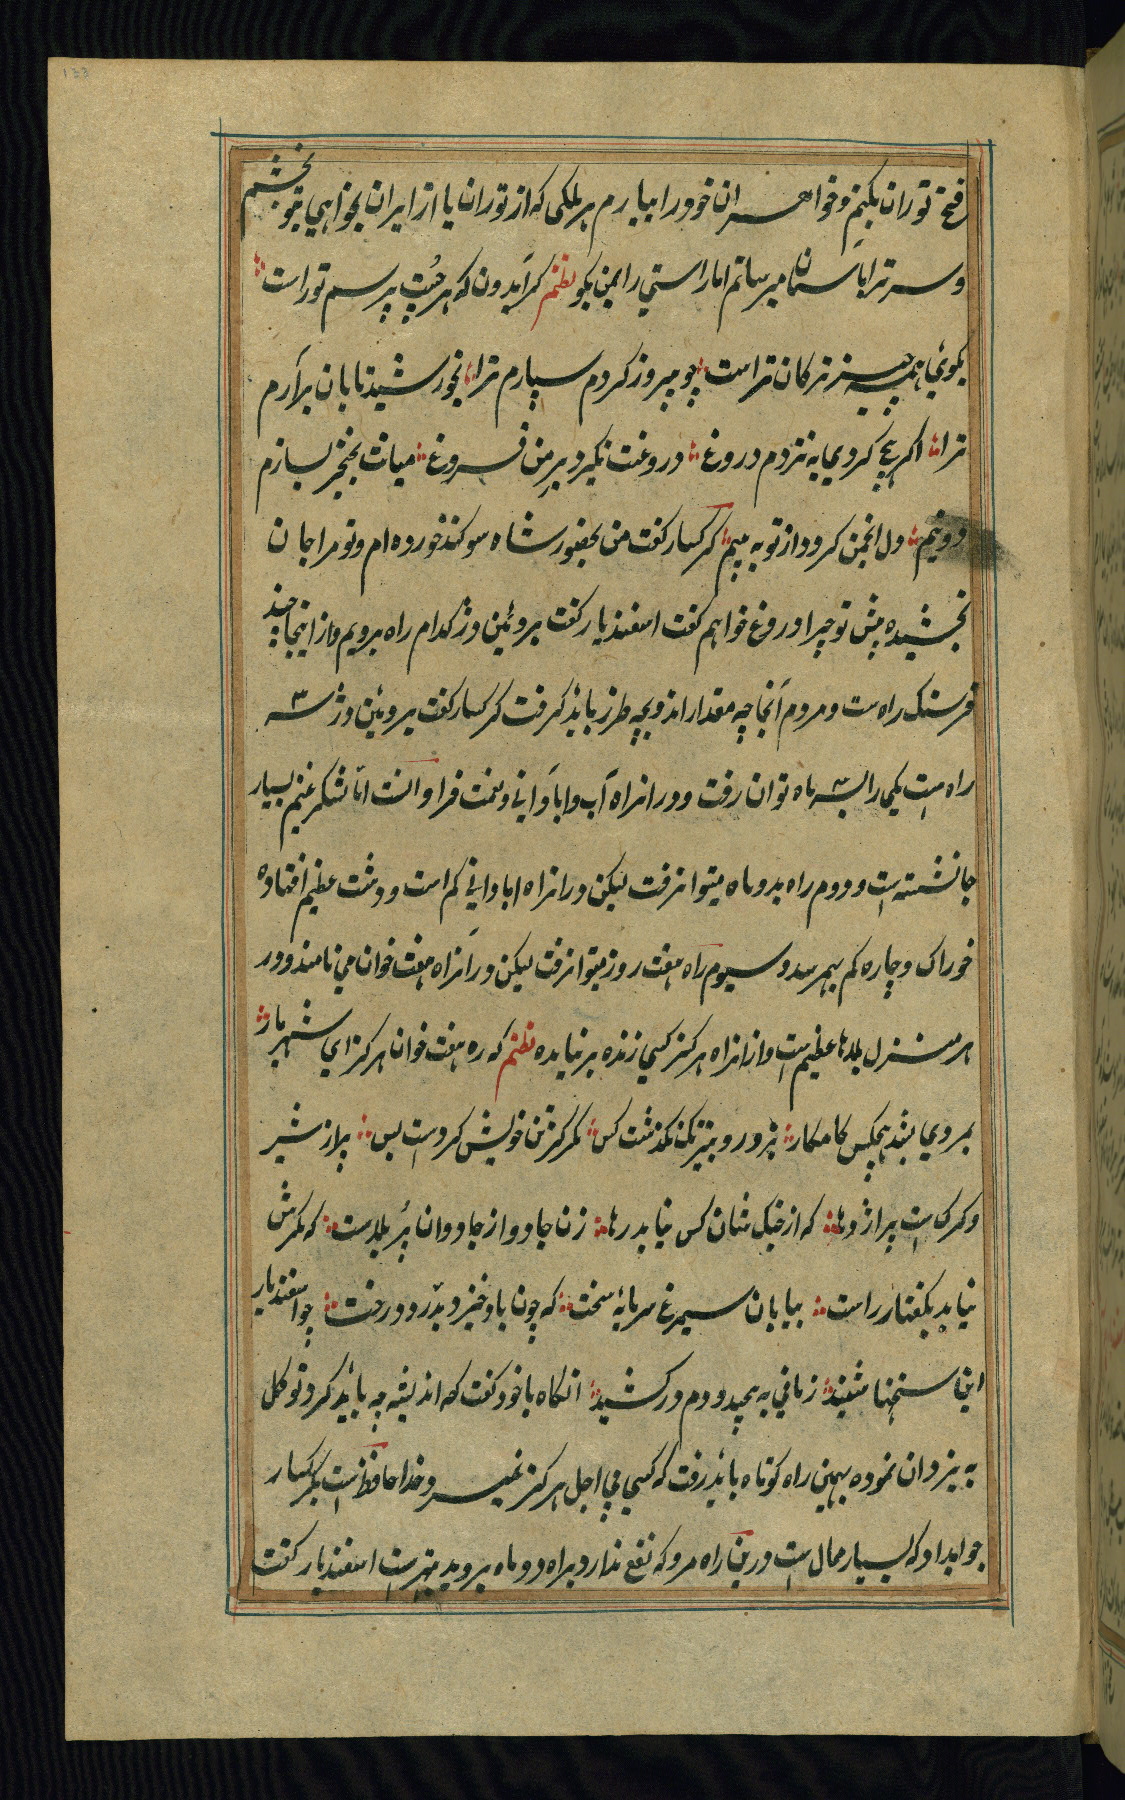 فتح توران بکنم و خواهران خود را بیارم هر ملکی که از توران یا از ایران بخواهی بتو بخشم
و سر ترا باسمان میرسانم اما راستی را بمن بکو نظم کر ایدون که هر چت بپرسم تو راست
بکوئی همه چیز ترکان تراست چو پیروز کردم سپارم ترا بخورشید تابان برآرم
ترا اکر هیچ کردی به نزدم دروغ دروغت نکیرد بر من فروغ میانت بخنجر بسازم
دو نیم دل انجمن کردد از تو به بیم کرکسار کفت من بحضور شاه سوکند خورده ام و تو مرا جان
بخشیده پیش تو چرا دروغ خواهم کفت اسفندیار کفت بروئین دژ کدام راه برویم و از اینجا چند
فرسنک راه ست و مردم آنجا چه مقدار اند و بچه طرز باید کرفت کرکسار کفت بروئین دژ سه
راه است یکی را بسه ماه توان رفت و در انراه آب و ابادانی و نعمت فراوانست اما لشکر غنیم بسیار
جا نشسته است و دوم راه بدو ماه میتوانرفت لیکن در انراه ابادانی کم است و دشت عظیم افتاده
خوراک و چاره کم بهمرسد و سیوم راه هفت روز میتوانرفت لیکن در آنراه هفت خوان می نامند و در
هر منزل بلاها عظیم است و از انراه هرکز کسی زنده بر نیامده نظم که ره هفت خوان هرکز ای شهریار
به مردی نشد هیچکس کامکار بزور و بنیرنک نکذشت کس مکر کز تن خویش کردست بس پر از شیر
و کرکست پر اژدها که از جنک شان کس نیابد رها زن جادو از جادوان پر بلاست که مکرش
نیاید بکفتار راست بیابان سیمرغ سرمایهٔ سخت که چون باد خیزد بدرد درخت چو اسفندیار
این سخنها شنید زمانی به پیچید و دم در کشید انکاه با خود کفت که اندیشه چه باید کرد توکل
به یزدان نموده بهمین راه کوتاه باید رفت که کسی بی اجل هرکز نمیرد و خدا حافظ است کرکسار
جوابداد که بسیار محال است درین راه مرو که نفع ندارد براه دو ماه بروید بهتر است اسفندیار کفت